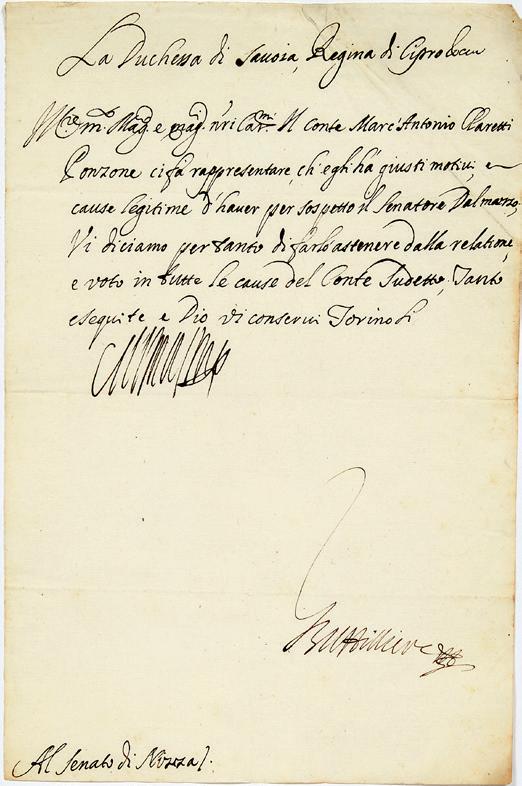 La Duchessa di Savoia, Regina di Cipro &c.
Mag.ci e n'ri Car.mi Il Conte Marc'Antonio Claretti
Ponzone ci fà rappresentare, ch'egli hà giusti motivi, e
cause legitime d'haver per sospetto il Senatore Dalmazzo,
Vi diciamo per tanto di farlo astenere dalla relatione,
e voto in tutte le cause del Conte sudetto, Tanto
esequite e Dio vi conservi Torino li
Al Senato di Nizza